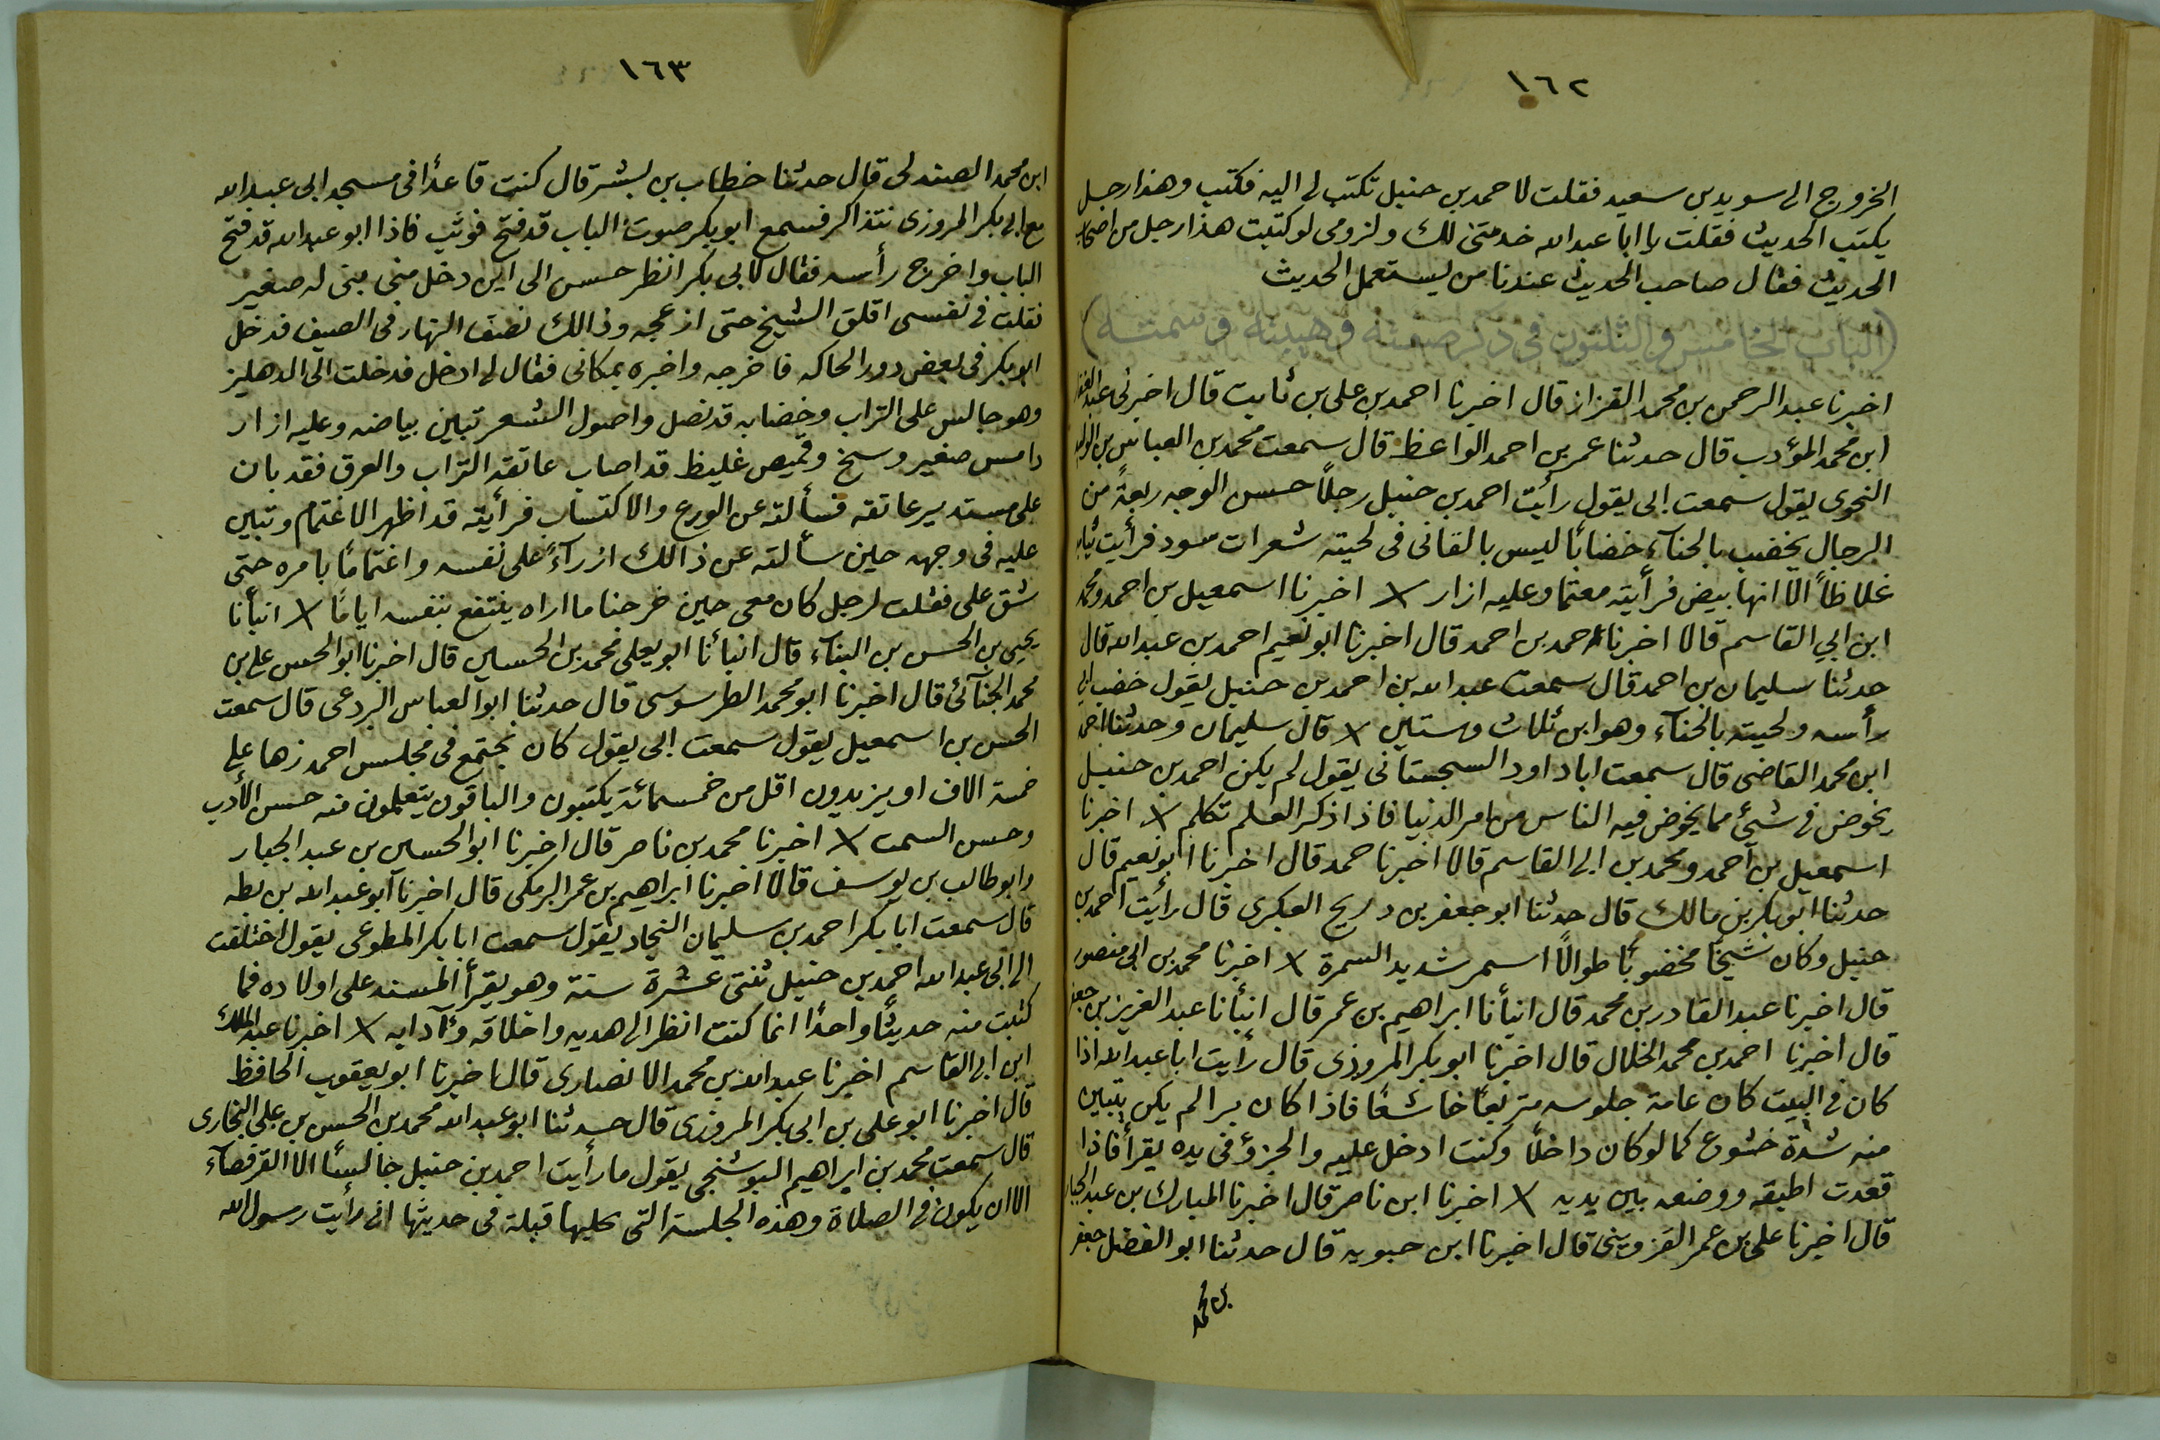 ١٦٢
الخروج الى سويد بن سعيد فقلت لاحمد بن حنبل تكتب لى اليه فكتب وهذا رجل
يكتب الحديث فقلت يا ابا عبد الله خدمتى لك ولزومى لو كتبت هذا رجل من اصحاب
الحديث فقال صاحب الحديث عندنا من يستعمل الحديث
(الباب الخامس والثلثون فى ذكر صفته وهيبته وسمته)
اخبرنا عبد الرحمن بن محمد القزاز قال اخبرنا احمد بن على بن ثابت قال اخبرنى عبد الغفار
ابن محمد المؤدب قال حدثنا عمر بن احمد الواعظ قال سمعت محمد بن العباس بن الوليد
النحوى يقول سمعت ابى يقول رأيت احمد بن حنبل رجلًا حسن الوجه ربعةً من
الرجال يخضب بالحنآء خضابًا ليس بالقانى فى لحيته شعرات سود فرأيت ثيابه
غلاظاً الا انها بيض فرأيته معتما وعليه ازار × اخبرنا اسمعيل بن احمد ومحمد
ابن ابي القاسم قالا اخبرنا حمد بن احمد قال اخبرنا ابو نعيم احمد بن عبد الله قال
حدثنا سليمان بن احمد قال سمعت عبد الله بن احمد بن حنبل يقول خضب ابى
رأسه ولحيته بالحنآء وهو ابن ثلاث وستين × قال سليمان وحدثنا احمد
ابن محمد القاضى قال سمعت ابا داود السجستانى يقول لم يكن احمد بن حنبل
يخوض فى شئ مما يخوض فيه الناس من امر الدنيا فاذا ذكر العلم تكلم × اخبرنا
اسمعيل بن احمد ومحمد بن ابى القاسم قالا اخبرنا حمد قال اخبرنا ابو نعيم قال
حدثنا ابى بكر بن مالك قال حدثنا ابو جعفر بن دريح العكبرى قال رأيت احمد بن
حنبل وكان شيخًا مخضوبًا طوالًا اسمر شديد السمرة × اخبرنا محمد بن ابى منصور
قال اخبرنا عبد القادر بن محمد قال انبأنا ابراهيم بن عمر قال انبأنا عبد العزيز بن جعفر
قال اخبرنا احمد بن محمد الخلال قال اخبرنا ابو بكر المروذى قال رأيت ابا عبد الله اذا
كان فى البيت كان عامة جلوسه متربعًا خاشعًا فاذا كان برا لم يكن يتبين
منه شدة خشوع كما لو كان داخلًا وكنت ادخل عليه والجزؤ فى يده يقرأ فاذا
قعدت اطبقه ووضعه بين يديه × اخبرنا ابن ناصر قال اخبرنا المبارك بن عبد الجبار
قال اخبرنا على بن عمر القزوينى قال اخبرنا ابن حيويه قال حدثنا ابو الفضل جعفر
بن محمد
١٦٣
ابن محمد الصندلى قال حدثنا خطاب بن بشر قال كنت قاعدًا فى مسجد ابى عبد الله
مع ابى بكر المروزى نتذاكر فسمع ابو بكر صوت الباب قد فتح فوثب فاذا ابو عبد الله قد فتح
الباب واخرج رأسه فقال لابى بكر انظر حسن الى اين دخل منى بنى له صغير
فقلت فى نفسى اقلق الشيخ حتى ازعجه وذالك نصف النهار فى الصيف فدخل
ابو بكر فى بعض دور الحاكه فاخرجه واخبره بمكانى فقال لى ادخل فدخلت الى الدهليز
وهو جالس على التراب وخضابه قد نصل واصول الشعر تبين بياضه وعليه ازار
دامس صغير وسخ وقميص غليظ قد اصاب عاتقه التراب والعرق فقد بان
على مستدير عاتقه فسألته عن الورع والاكتساب فرأيته قد اظهر الاغتمام وتبين
عليه فى وجهه حين سألته عن ذالك ازرآءً على نفسه واغتمامًا بامره حتى
شق على فقلت لرجل كان معى حين خرجنا ما اراه ينتفع بنفسه ايامًا × انبأنا
يحيى بن الحسن بن البنآء قال انبأنا ابو يعلى محمد بن الحسين قال اخبرنا ابو الحسن على بن
محمد الحنآئى قال اخبرنا ابو محمد الطرسوسى قال حدثنا ابو العباس البردعى قال سمعت
الحسن بن اسمعيل يقول سمعت ابى يقول كان يجتمع فى مجلس احمد زها على
خمسة الاف او يزيدون اقل من خمسمائة يكتبون والباقون يتعلمون منه حسن الأدب
وحسن السمت × اخبرنا محمد بن ناصر قال اخبرنا ابو الحسين بن عبد الجبار
وابو طالب بن يوسف قالا اخبرنا ابراهيم بن عمر البرمكى قال اخبرنا ابو عبد الله بن بطه
قال سمعت ابا بكر احمد بن سليمان النجاد يقول سمعت ابا بكر المطوعى يقول اختلفت
الى ابى عبد الله احمد بن حنبل ثنتى عشرة سنة وهو يقرأ المسند على اولاده فما
كتبت منه حديثًا واحدًا انما كنت انظر الى هديه واخلاقه وآدابه × اخبرنا عبد الملك
ابن ابى القاسم اخبرنا عبد الله بن محمد الانصارى قال اخبرنا ابو يعقوب الحافظ
قال اخبرنا ابو على بن ابى بكر المروزى قال حدثنا ابو عبد الله محمد بن الحسن بن على البخارى
قال سمعت محمد بن ابراهيم البوشنجى يقول ما رأيت احمد بن حنبل جالسًا الا القرفصآء
الا ان يكون فى الصلاة وهذه الجلسة التى تحكيها قيلة فى حديثها انى رأيت رسول الله